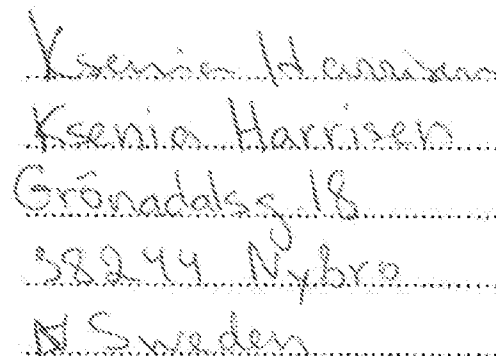 Ksenia Harrisen
Ksenia Harrisen
Grönadalsg 18
38244 Nybro
Sweden